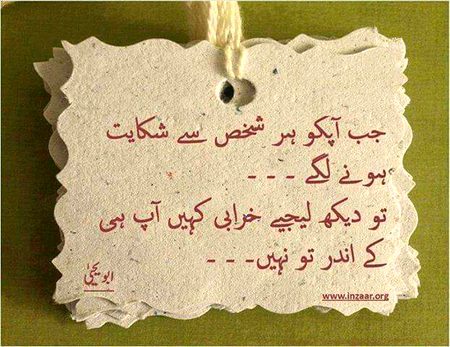 جب آپکو ہر شخص سے شکایت
ہونے لگے - - -
تو دیکھ لیجیے خرابی کہیں آپ ہی
کے اندر تو نہیں- - -
ابو یحییٰ
www.inzaar.org